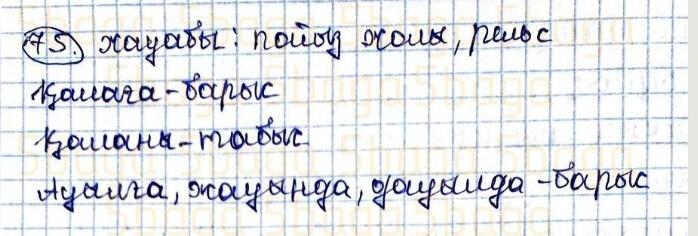 75. жауабы: пойыз жолы, рельс
Қалаға-барыс
Қаланы-табыс
Ауылға, жауында, дауылда-барыс